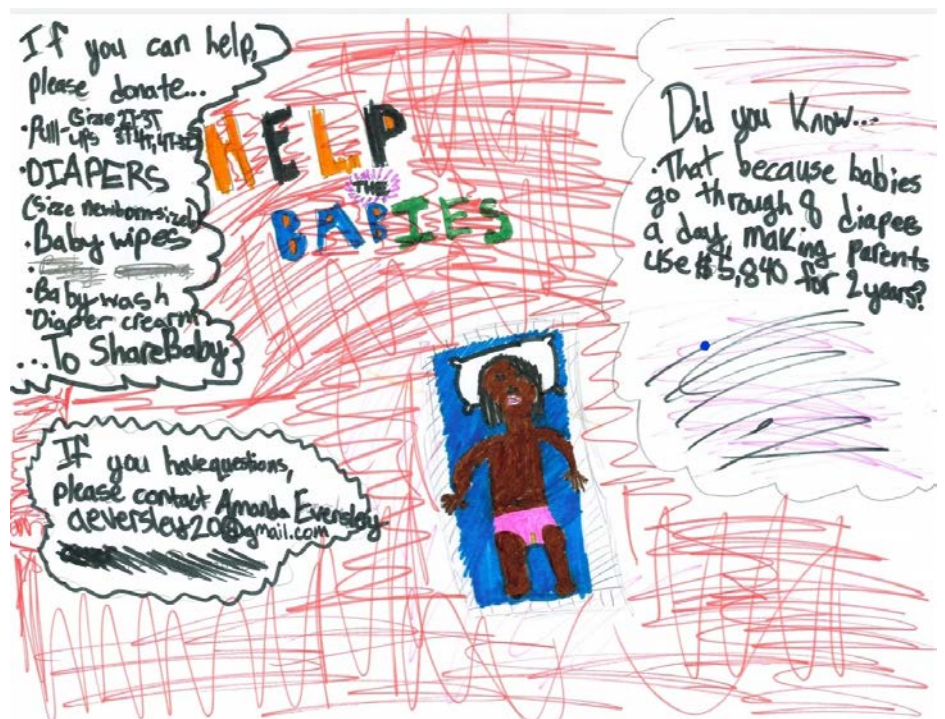 If you can help,
please donate...
• Pull-ups (Size 2T-3T
3T4T, 4T-5T)
• DIAPERS
(Size newborn-size)
• Baby wipes
• Baby wash
• Diaper crearm
...To ShareBaby
HELP
THE
BABIES
Did you know...
• That because babies
go through 8 diapees
a day, making parents
use $5,840 for 2 years?
If you have questions,
please contact Amanda Eversley
aeversley20@gmail.com